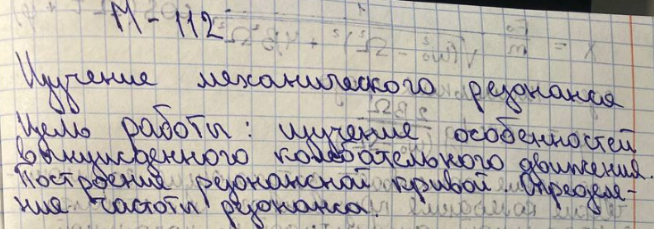 М-112
Изучение механического резонанса
Цель работы: изучение особенностей
вынужденного колебательного движения.
Построение резонансной кривой. Определе-
ния частоты резонанса.